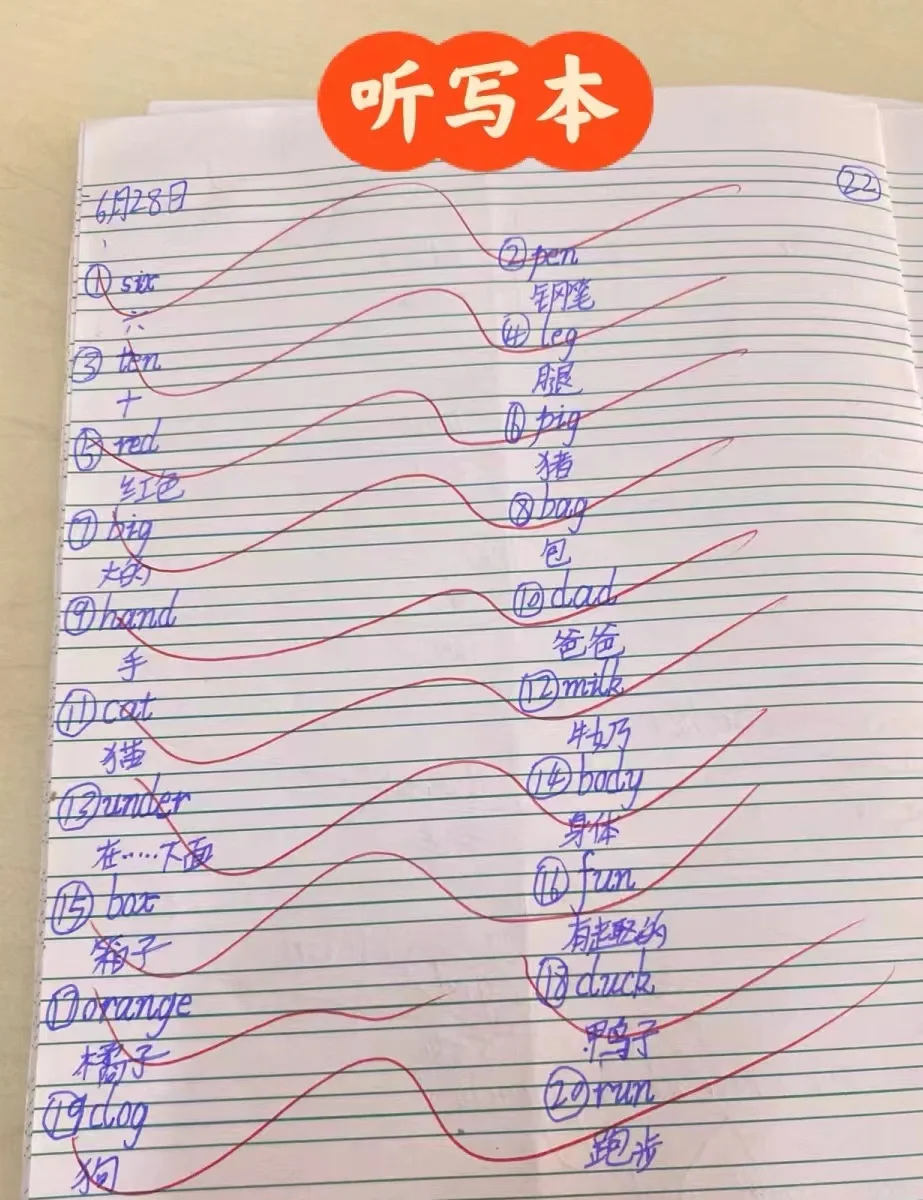 听写本
6月28日
22
① six
② pen
六
钢笔
③ ten
④ leg
十
腿
⑤ red
⑥ pig
红色
猪
⑦ big
⑧ bag
大的
包
⑨ hand
⑩ dad
手
爸爸
⑪ cat
⑫ milk
猫
牛奶
⑬ under
⑭ body
在……下面
身体
⑮ box
⑯ fun
箱子
有趣的
⑰ orange
⑱ duck
橘子
鸭子
⑲ dog
⑳ run
狗
跑步